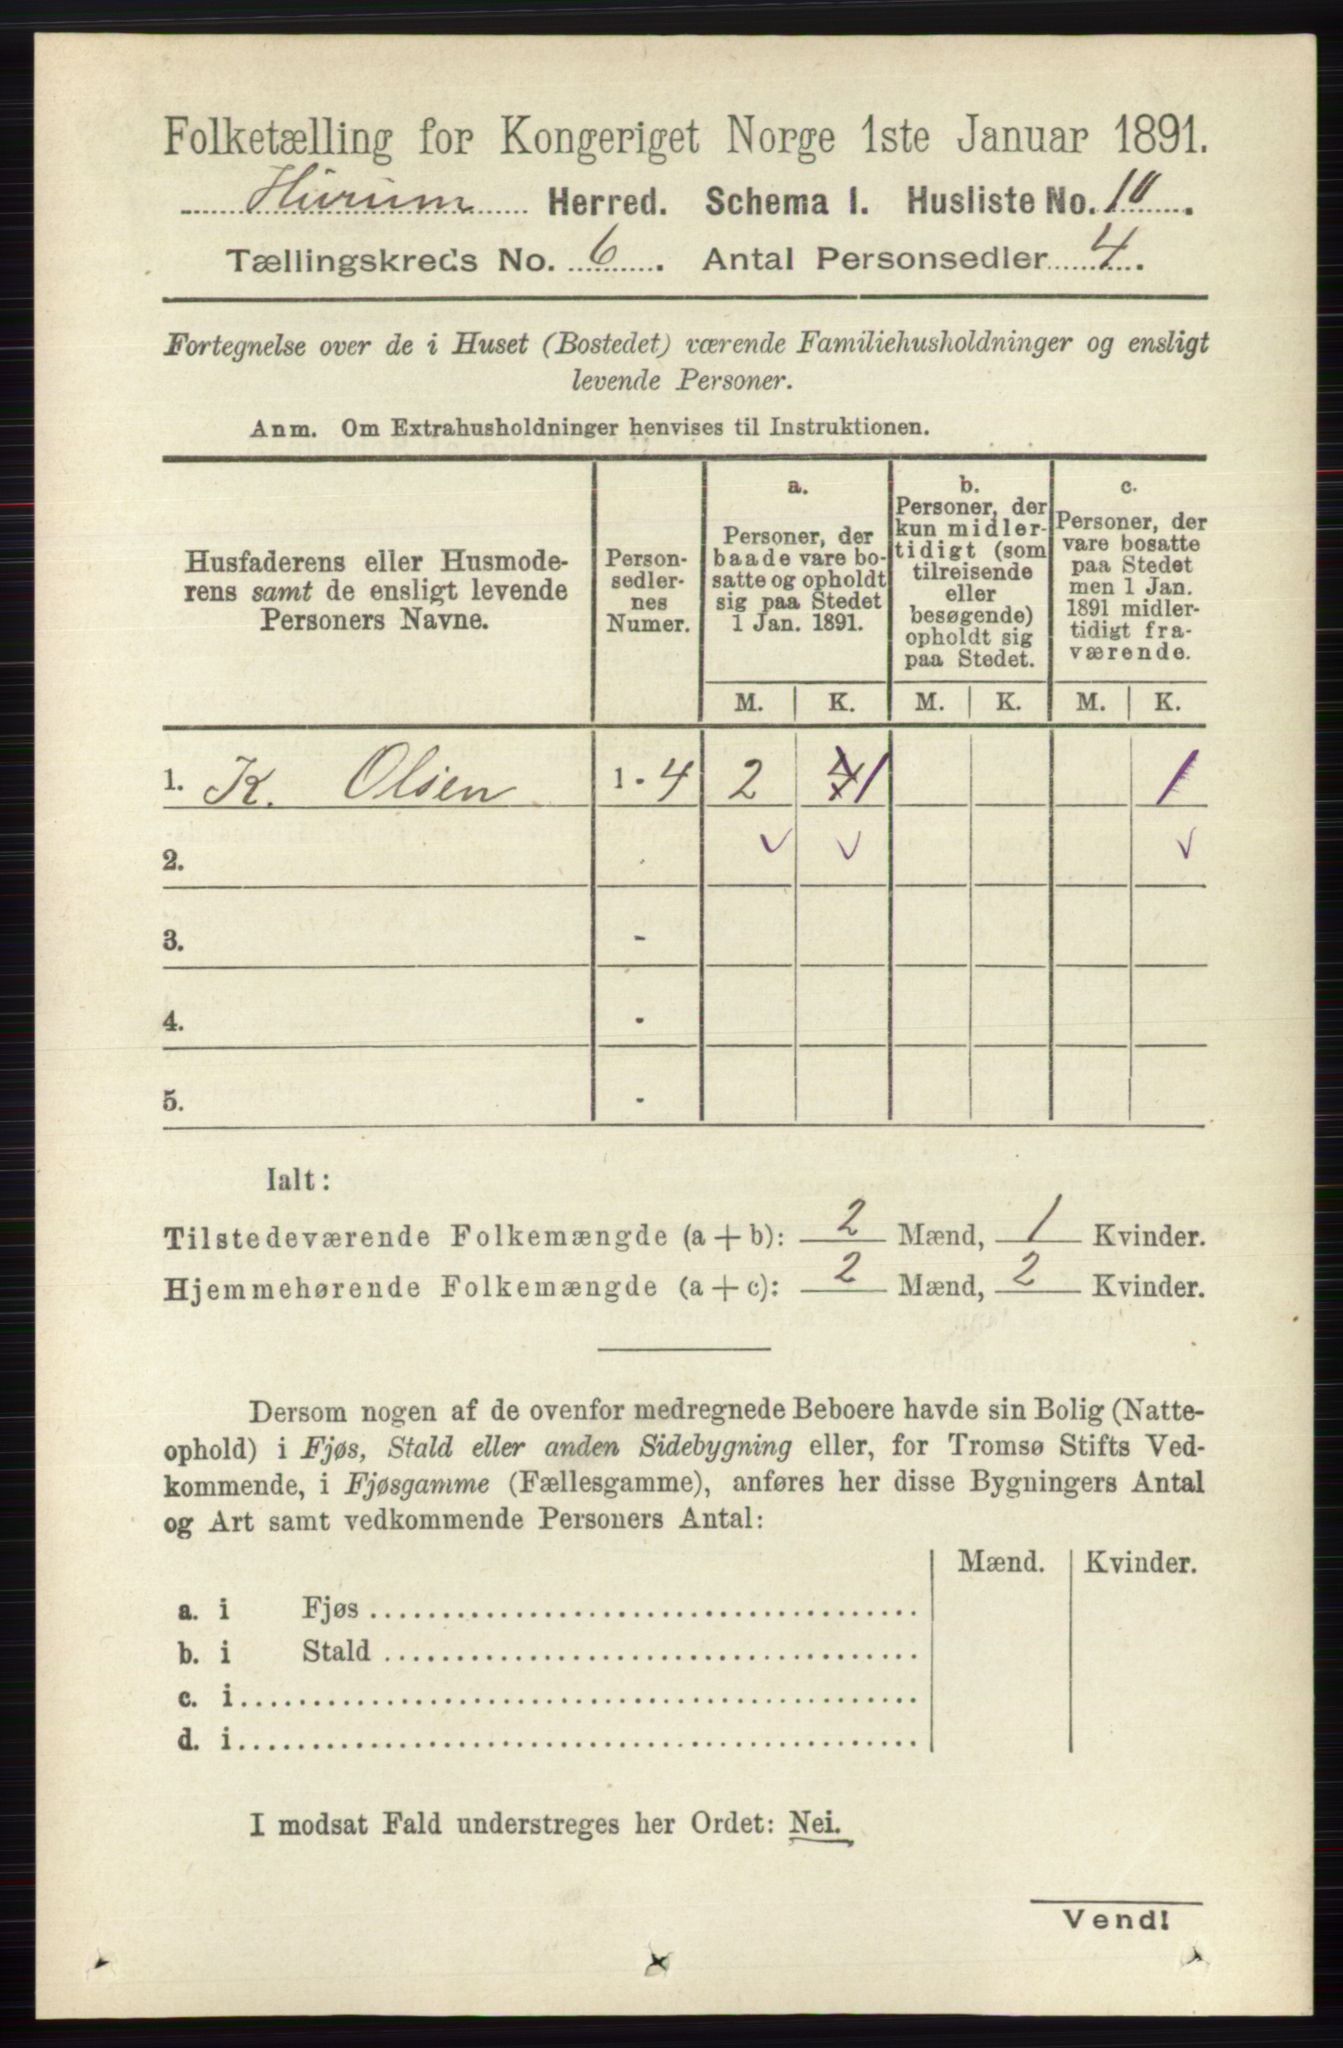 Folketælling for Kongeriget Norge 1ste Januar 1891.
Hurum Herred. Schema I. Husliste No. 10.
Tællingskreds No. 6. Antal Personsedler 4.
Fortegnelse over de i Huset (Bostedet) værende Familiehusholdninger og ensligt
levende Personer.
Anm. Om Extrahusholdninger henvises til Instruktionen.
Husfaderens eller Husmode-
rens samt de ensligt levende
Personers Navne.
Person-
sedler-
nes
Numer.
a.
Personer, der
baade vare bo-
satte og opholdt
sig paa Stedet
1 Jan. 1891.
b.
Personer, der
kun midler-
tidigt (som
tilreisende
eller
besøgende)
opholdt sig
paa Stedet.
c.
Personer, der
vare bosatte
paa Stedet
men 1 Jan.
1891 midler-
tidigt fra-
værende.
M. K. M. K. M. K.
1. K. Olsen 1 - 4 2 1 1
2.
3. -
4. -
5. -
Ialt:
Tilstedeværende Folkemængde (a + b): 2 Mænd, 1 Kvinder.
Hjemmehørende Folkemængde (a + c): 2 Mænd, 2 Kvinder.
Dersom nogen af de ovenfor medregnede Beboere havde sin Bolig (Natte-
ophold) i Fjøs, Stald eller anden Sidebygning eller, for Tromsø Stifts Ved-
kommende, i Fjøsgamme (Fællesgamme), anføres her disse Bygningers Antal
og Art samt vedkommende Personers Antal:
Mænd. Kvinder.
a. i Fjøs
b. i Stald
c. i
d. i
I modsat Fald understreges her Ordet: Nei.
Vend!